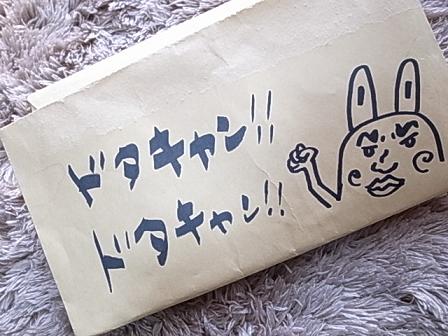 ドタキャン!!
ドタキャン!!